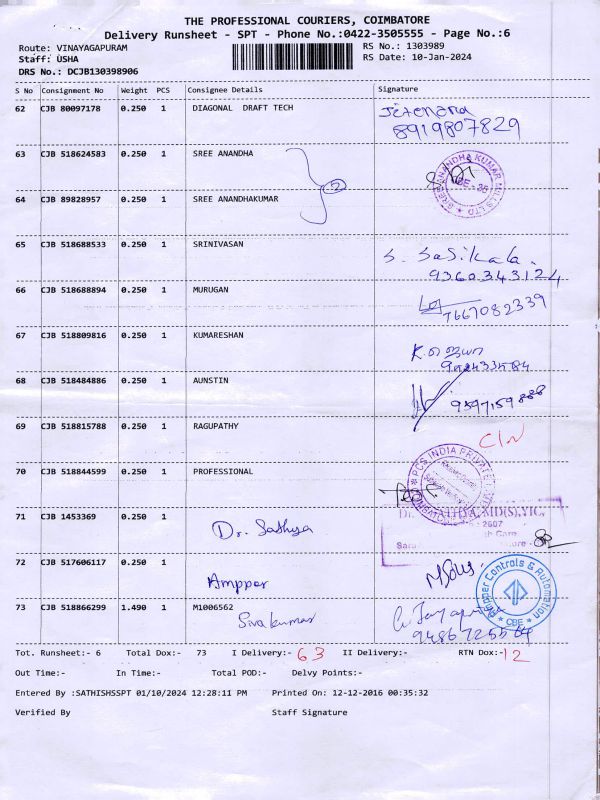 THE PROFESSIONAL COURIERS, COIMBATORE
Delivery Runsheet - SPT - Phone No.:0422-3505555 - Page No.:6
Route: VINAYAGAPURAM RS No.: 1303989
Staff: USHA RS Date: 10-Jan-2024
DRS No.: DCJB130398906
S No Consignment No Weight PCS Consignee Details Signature
62 CJB 80097178 0.250 1 DIAGONAL DRAFT TECH
8919807829
63 CJB 518624583 0.250 1 SREE ANANDHA
SREE ANANDHA KUMAR MILLS LTD
2
64 CJB 89828957 0.250 1 SREE ANANDHAKUMAR
65 CJB 518688533 0.250 1 SRINIVASAN S. Sasikala.
9360343124
66 CJB 518688894 0.250 1 MURUGAN
7667082339
67 CJB 518809816 0.250 1 KUMARESHAN
68 CJB 518484886 0.250 1 AUNSTIN
9597159888
69 CJB 518815788 0.250 1 RAGUPATHY
70 CJB 518844599 0.250 1 PROFESSIONAL
PCS INDIA PRIVATE
71 CJB 1453369 0.250 1 Dr. Sathya
72 CJB 517606117 0.250 1 Ampper
Ampper Controls & Automation
CBE
73 CJB 518866299 1.490 1 M1006562
Sivakumar
9486725564
Tot. Runsheet:- 6 Total Dox:- 73 I Delivery:- 63 II Delivery:- RTN Dox:- 12
Out Time:- In Time:- Total POD:- Delvy Points:-
Entered By :SATHISHSSPT 01/10/2024 12:28:11 PM Printed On: 12-12-2016 00:35:32
Verified By Staff Signature